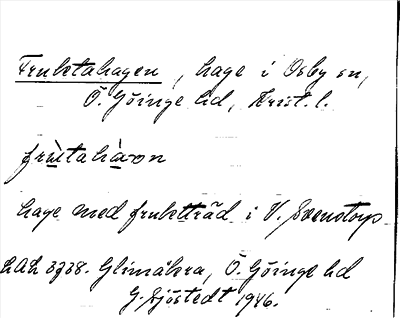 Fruktahagen, hage i Osby sn,
Ö. Göinge hd, Krist. l.
frùtahàvon
hage med fruktträd i V. Svenstorp
LAL 3738. Glimåkra, Ö. Göinge hd
G. Sjöstedt 1946.